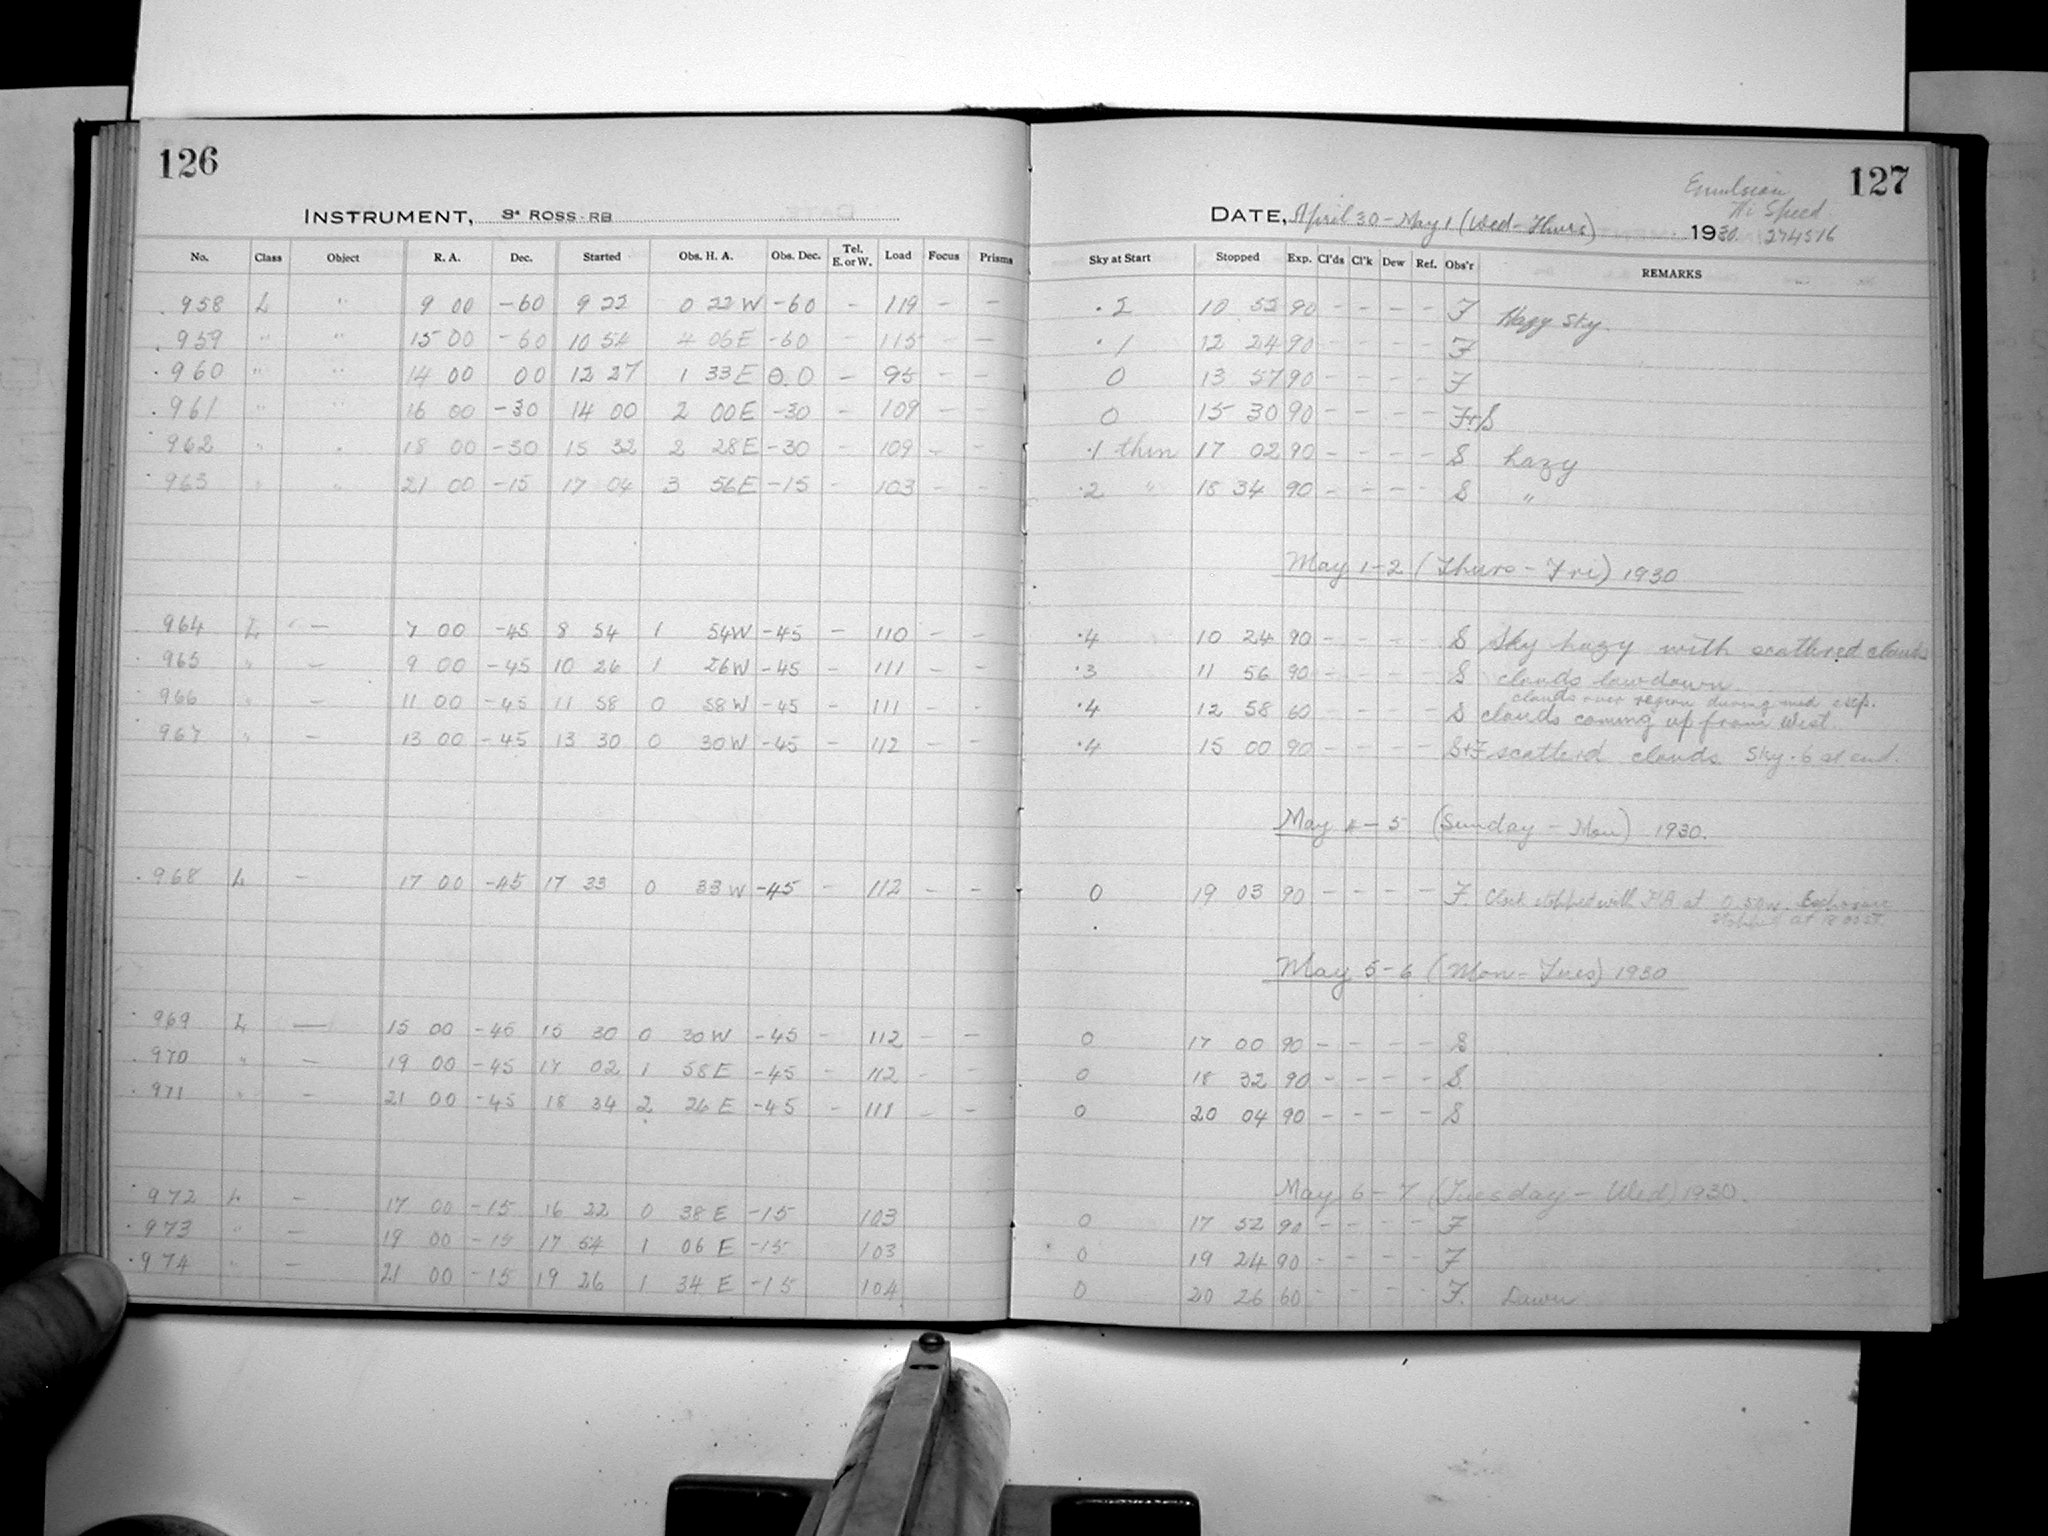 126
INSTRUMENT, 3" ROSS-RB
No. Class Object R. A. Dec. Started Obs. H. A. Obs. Dec. Tel. E. or W. Load Focus Prisms
958 L " 9 00 -60 9 22 0 22 W -60 - 119 - -
959 " " 15 00 -60 10 54 4 06 E -60 - 115 - -
960 " " 14 00 00 12 27 1 33 E 0.0 - 95 - -
961 " " 16 00 -30 14 00 2 00 E -30 - 109 - -
962 " " 18 00 -30 15 32 2 28 E -30 - 109 - -
963 " " 21 00 -15 17 04 3 56 E -15 - 103 - -
964 L " - 7 00 -45 8 54 1 54 W -45 - 110 - -
965 " - 9 00 -45 10 26 1 26 W -45 - 111 - -
966 " - 11 00 -45 11 58 0 58 W -45 - 111 - -
967 " - 13 00 -45 13 30 0 30 W -45 - 112 - -
968 L - 17 00 -45 17 33 0 33 W -45 - 112 - -
969 L - 15 00 -45 15 30 0 30 W -45 - 112 - -
970 " - 19 00 -45 17 02 1 58 E -45 - 112 - -
971 " - 21 00 -45 18 34 2 26 E -45 - 111 - -
972 L - 17 00 -15 16 22 0 38 E -15 103
973 " - 19 00 -15 17 54 1 06 E -15 103
974 " - 21 00 -15 19 26 1 34 E -15 104
127
Emulsion
Hi Speed
DATE, April 30 - May 1 (Wed - Thurs) 1930. 274516
Sky at Start Stopped Exp. Cl'ds Cl'k Dew Ref. Obs'r REMARKS
.2 10 52 90 - - - - F Hazy sky.
.1 12 24 90 - - - - F
0 13 57 90 - - - - F
0 15 30 90 - - - - F+S
.1 thin 17 02 90 - - - - S hazy
.2 " 18 34 90 - - - - S "
May 1-2 (Thurs - Fri) 1930
.4 10 24 90 - - - - S Sky hazy with scattered clouds
.3 11 56 90 - - - - S clouds low down.
clouds over region during mid exp.
.4 12 58 60 - - - - S clouds coming up from West.
.4 15 00 90 - - - - S+F scattered clouds Sky .6 at end.
May 4-5 (Sunday - Mon) 1930.
0 19 03 90 - - - - F. Clock stopped with HA at 0 50 W. Exposure
stopped at
May 5-6 (Mon - Tues) 1930
0 17 00 90 - - - - S
0 18 32 90 - - - - S
0 20 04 90 - - - - S
May 6-7 (Tuesday - Wed) 1930.
0 17 52 90 - - - - F
0 19 24 90 - - - - F
0 20 26 60 - - - - F. Dawn